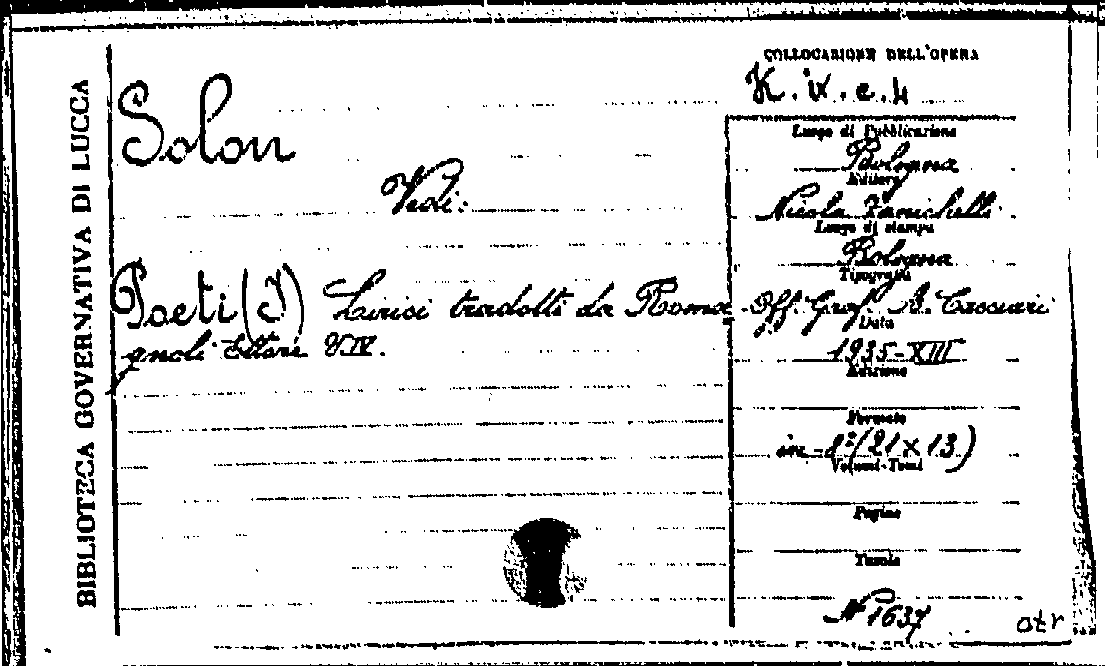 BIBLIOTECA GOVERNATIVA DI LUCCA
Solon
Vedi:
Poeti (I) Lirici tradotti da Roma-
gnoli Ettore V.IV.
COLLOCAZIONE DELL'OPERA
K.ix.c.4
Luogo di Pubblicazione
Bologna
Editore
Nicola Zanichelli
Luogo di stampa
Bologna
Tipografia
Off. Graf. A. Cacciari
Data
1935-XIII
Edizione
Formato
in-8º (21 x 13)
Volumi-Tomi
Pagine
Tavole
N 1637